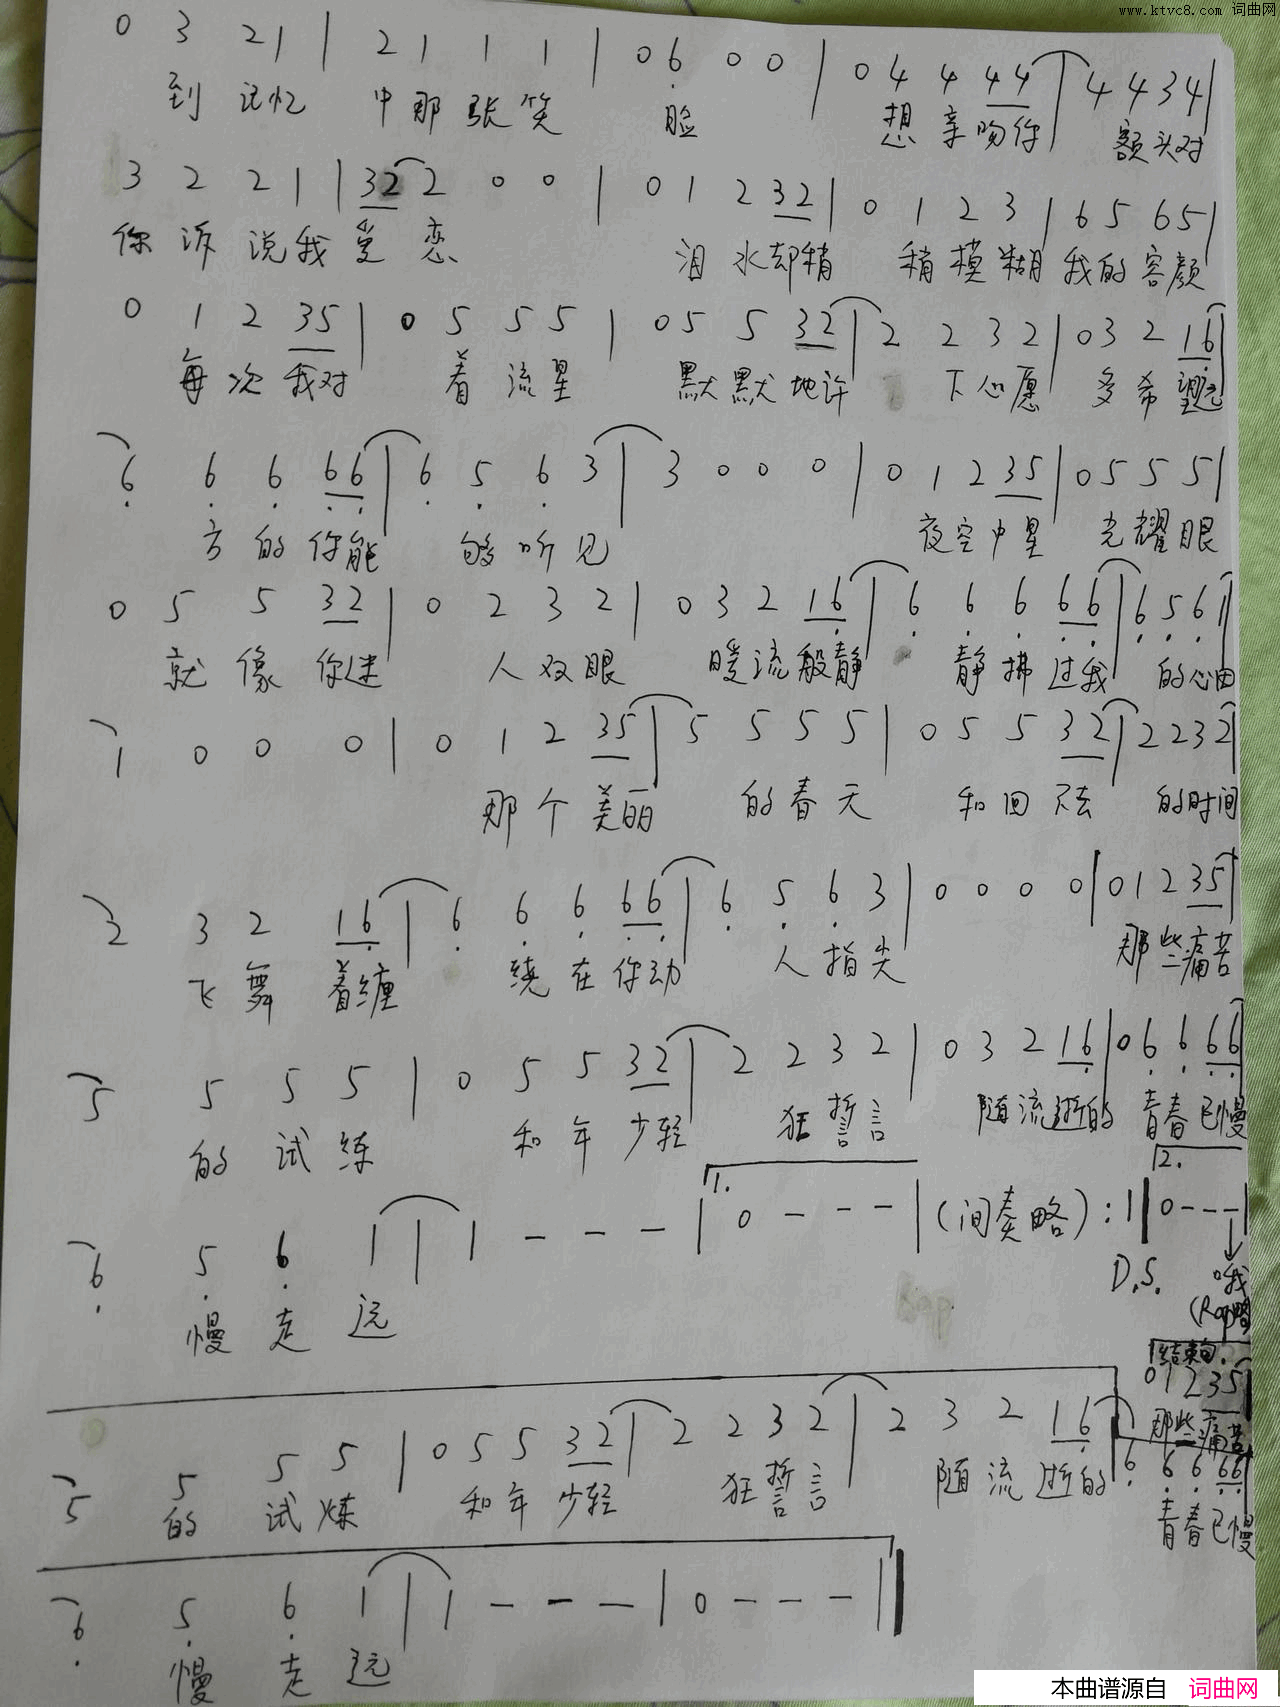 www.ktvc8.com 词曲网
0 3 21 | 2 1 1 1 | 0 6 0 0 | 0 4 4 44 | 4 4 3 4 |
到 记忆 中 那 张 笑 脸 想 亲 吻你 额头对
3 2 2 1 | 32 2 0 0 | 0 1 2 32 | 0 1 2 3 | 6 5 6 5 |
你 诉 说 我 爱 恋 泪 水 却稍 稍 模 糊 我 的 容 颜
0 1 2 35 | 0 5 5 5 | 0 5 5 32 | 2 2 3 2 | 0 3 2 16
每 次 我对 着 流 星 默 默 地许 下 心 愿 多 希 望远
6 6 6 66 | 6 5 6 3 | 3 0 0 0 | 0 1 2 35 | 0 5 5 5 |
方 的 你能 够 听 见 夜 空 中星 光 耀 眼
0 5 5 32 | 0 2 3 2 | 0 3 2 16 | 6 6 6 66 | 6 5 6 1
就 像 你迷 人 双 眼 暖 流 般静 静 拂 过我 的心曲
1 0 0 0 | 0 1 2 35 | 5 5 5 5 | 0 5 5 32 | 2 2 3 2
那 个 美丽 的 春 天 和 回 不去 的时间
2 3 2 16 | 6 6 6 66 | 6 5 6 3 | 0 0 0 0 | 0 1 2 35
飞 舞 着缠 绕 在 你动 人 指 尖 那些痛苦
5 5 5 5 | 0 5 5 32 | 2 2 3 2 | 0 3 2 16 | 0 6 6 66
的 试 练 和 年 少轻 狂 誓 言 随 流 逝的 青春已慢
1. 2.
6 5 6 1 | 1 - - - | 0 - - - | (间奏略) :‖ 0 - - - |
慢 走 远 D.S. 哦
(Rap略)
结束句.
0 1 2 35
那些痛苦
5 5 5 5 | 0 5 5 32 | 2 2 3 2 | 2 3 2 16 | 6 6 6 66
的 试 炼 和 年 少轻 狂 誓 言 随 流 逝的 青春已慢
6 5 6 1 | 1 - - - | 0 - - - ‖
慢 走 远
本曲谱源自 词曲网